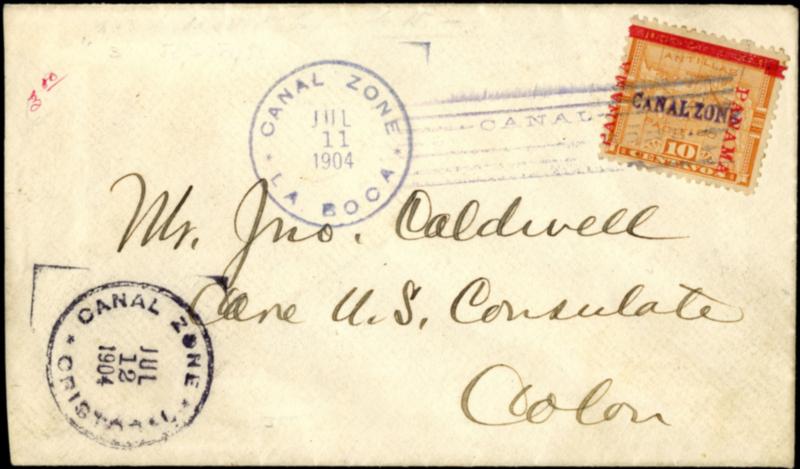 CANAL ZONE
JUL
11
1904
LA BOCA
CANAL
ANTILLAS
PANAMA
CANAL ZONE
PANAMA
PACIFICO
10
CENTAVOS
Mr. Jno. Caldwell
Care U.S. Consulate
Colon
CANAL ZONE
JUL
12
1904
CRISTOBAL